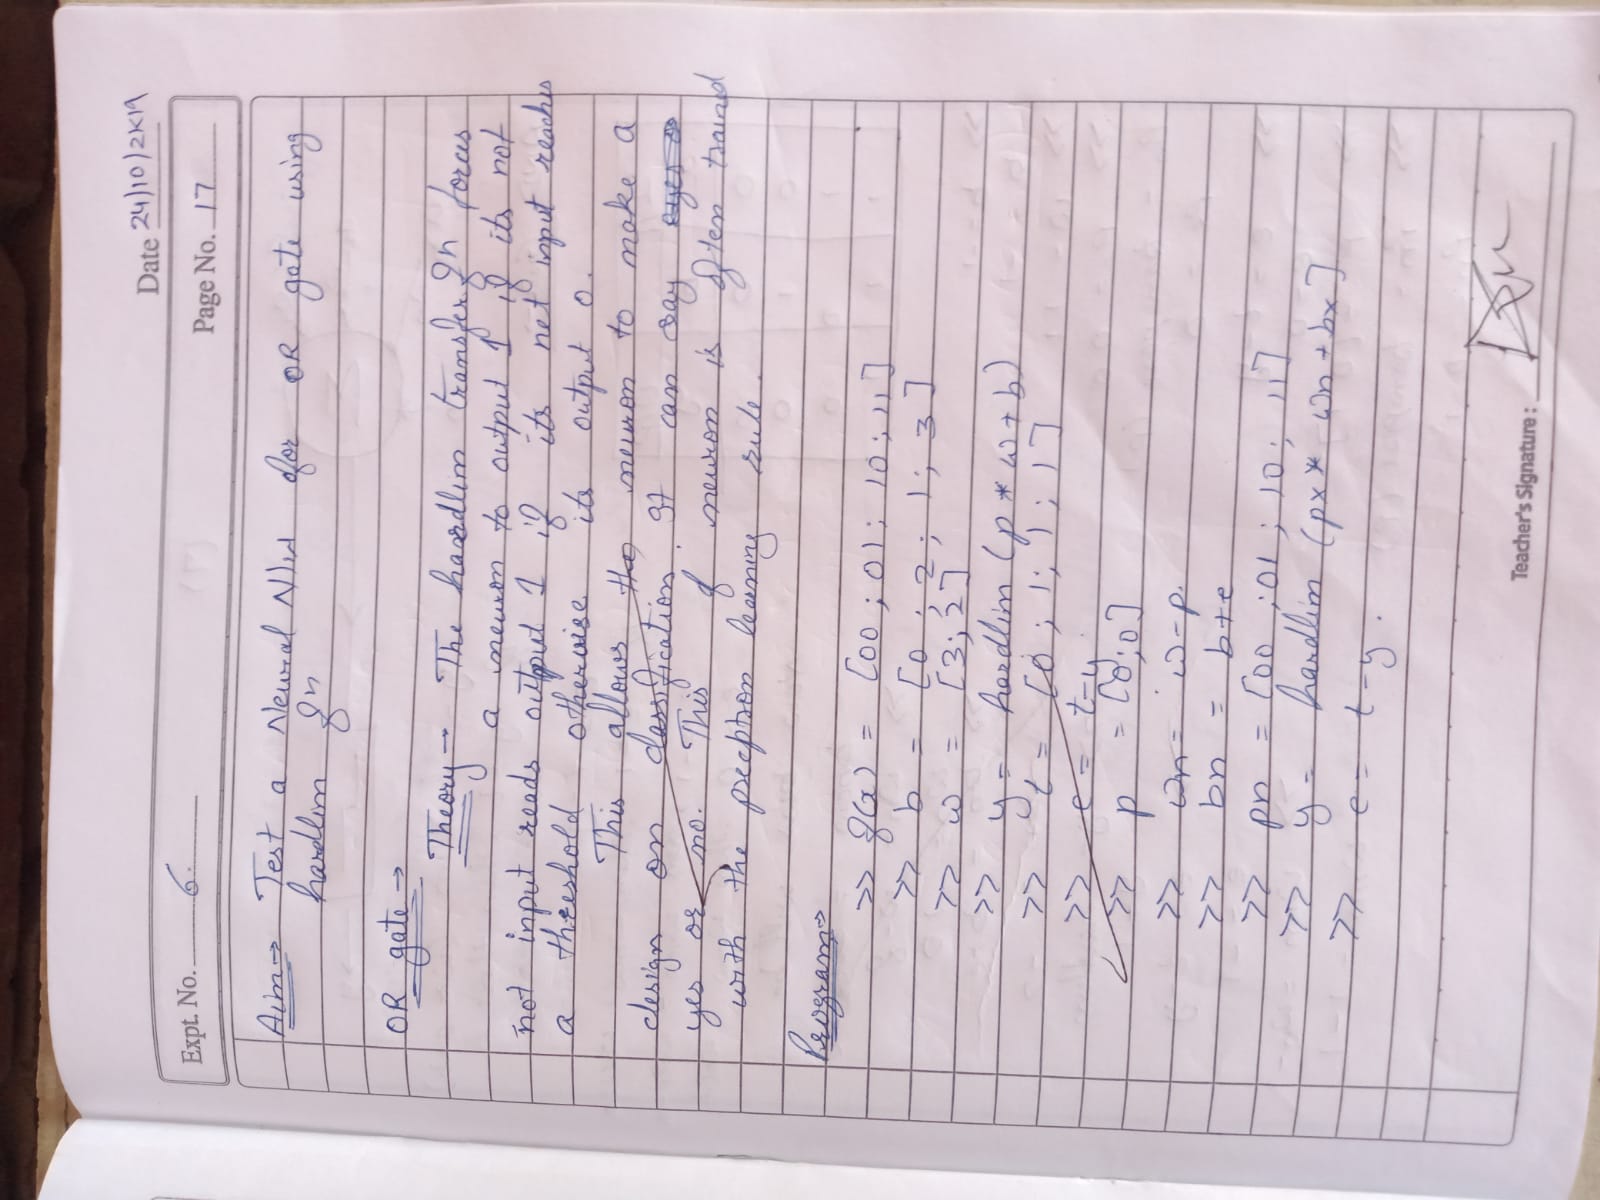 Date 24/10/2K19
Expt. No. 6.
Page No. 17
Aim→ Test a Neural N/w for OR gate using
hardlim gn
OR gate →
Theory → The hardlim transfer gn forces
a neuron to output 1 if its not
not input reads output 1 if its net input reaches
a threshold otherwise its output 0.
This allows the neuron to make a
design on classification. It can say
yes or no. This of neuron is often traind
with the preceptron learning rule.
Program→
>> g(x) = [00; 01; 10; 11]
>> b = [0; 2; 1; 3]
>> w = [3; 2]
>> y = hardlim (p * w + b)
>> t = [0; 1; 1; 1]
>> e = t-y
>> p = [0; 0]
>> wn = w-p.
>> bn = b+e
>> pn = [00; 01; 10; 11]
>> y = hardlim (px * wn + bx]
>> e = t-y.
Teacher's Signature :